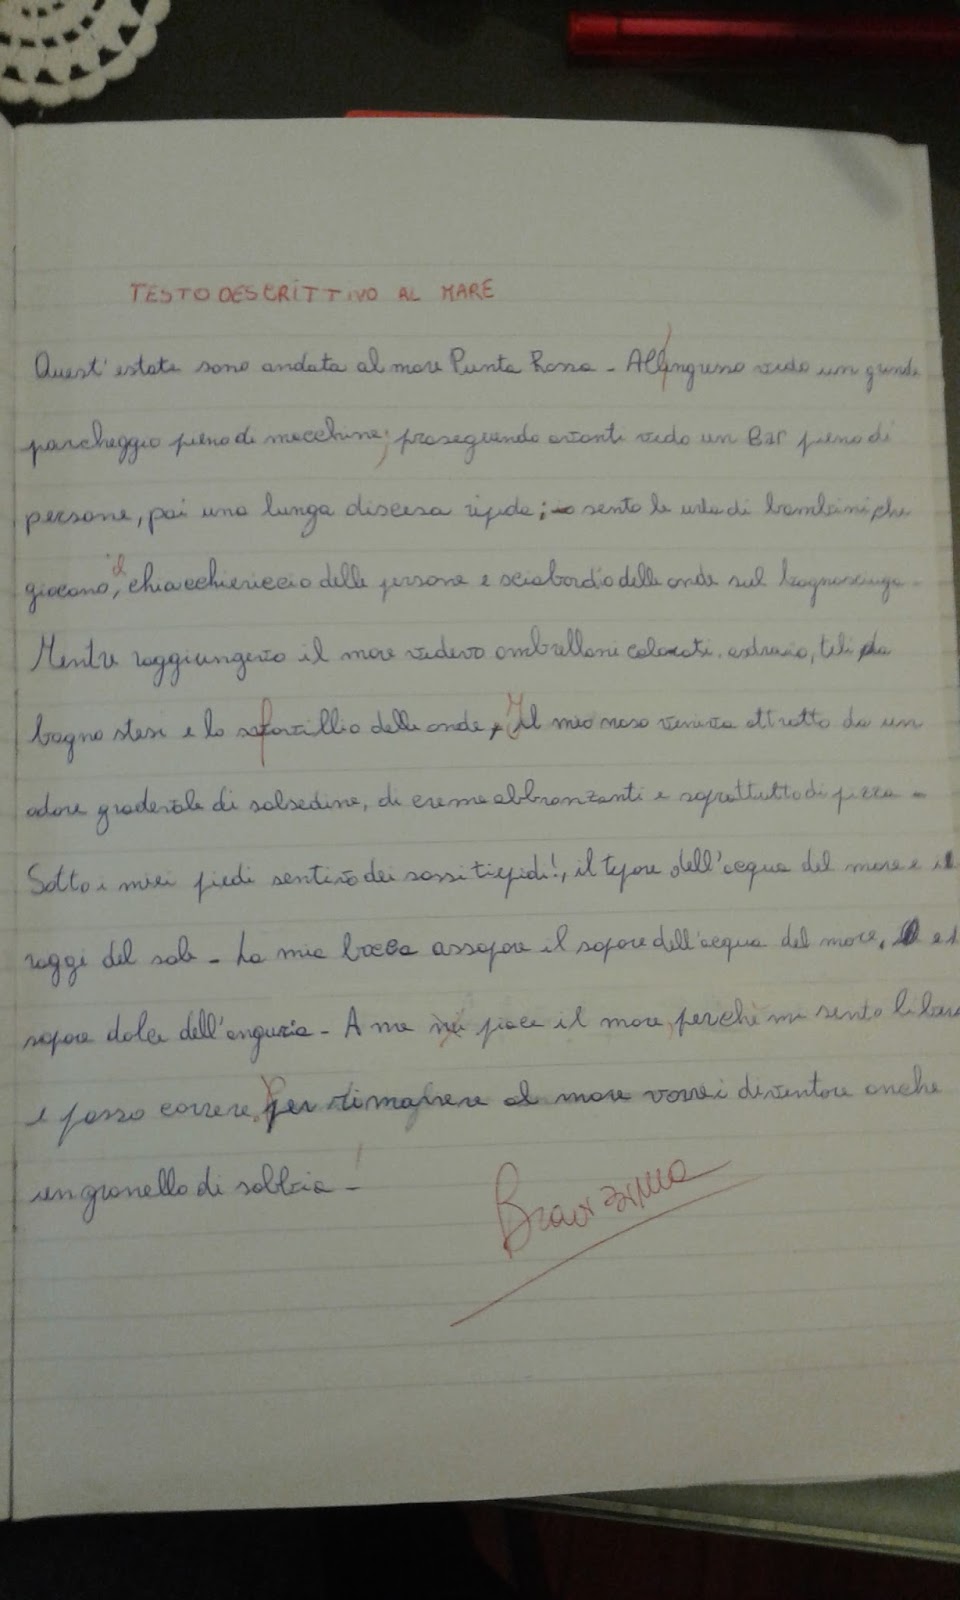 TESTO DESCRITTIVO AL MARE
Quest'estate sono andata al mare Punta Rossa - All'ingresso vedo un grande
parcheggio pieno di macchine; proseguendo avanti vedo un Bar pieno di
persone, poi una lunga discesa ripida; sento le urla di bambini che
giocano, il chiacchiericcio delle persone e sciabordio delle onde sul bagnasciuga -
Mentre raggiungevo il mare vedevo ombrelloni colorati, asdraio, teli da
bagno stesi e lo sfavillio delle onde. Il mio naso veniva attratto da un
odore gradevole di salsedine, di creme abbronzanti e soprattutto di pizza -
Sotto i miei piedi sentivo dei sassi tiepidi!, il tepore dell'acqua del mare e i
raggi del sole - La mia bocca assapora il sapore dell'acqua del mare, e il
sapore dolce dell'anguria - A me piace il mare, perchè mi sento libera
e posso correre. Per rimanere al mare vorrei diventare anche
un granello di sabbia - !
Bravissima